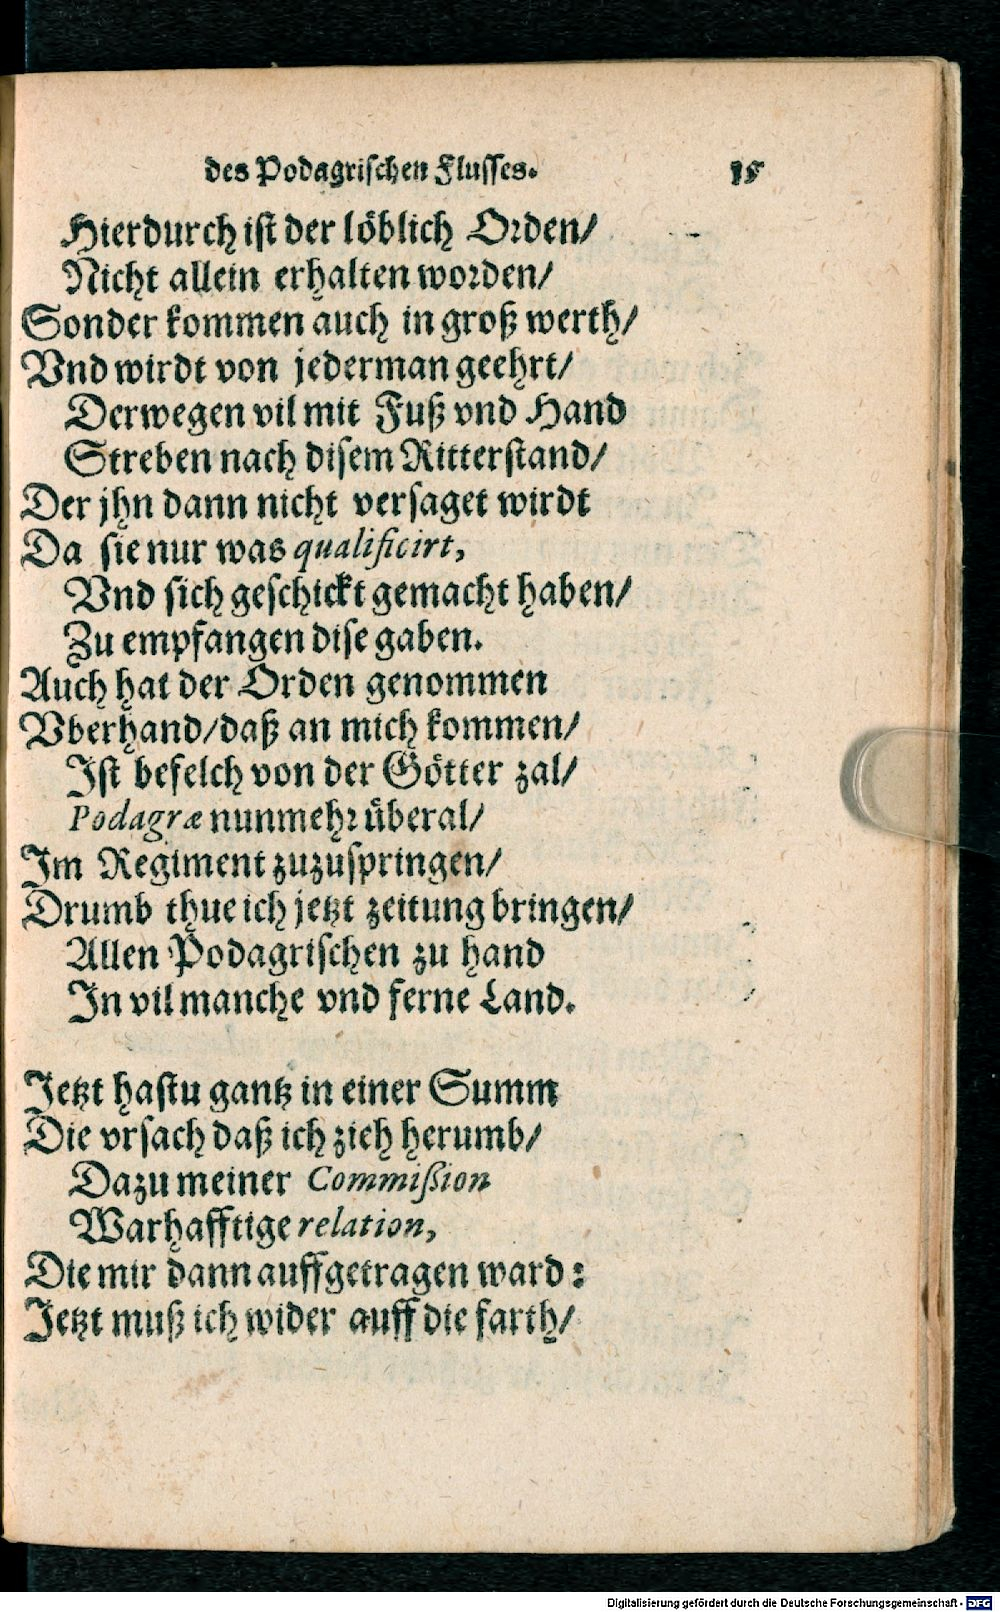 des Podagrischen Flusses. 15
Hierdurch ist der löblich Orden/
Nicht allein erhalten worden/
Sonder kommen auch in groß werth/
Vnd wirdt von jederman geehrt/
Derwegen vil mit Fuß vnd Hand
Streben nach disem Ritterstand/
Der jhn dann nicht versaget wirdt
Da sie nur was qualificirt,
Vnd sich geschickt gemacht haben/
Zu empfangen dise gaben.
Auch hat der Orden genommen
Vberhand/daß an mich kommen/
Ist befelch von der Götter zal/
Podagræ nunmehr überal/
Im Regiment zuzuspringen/
Drumb thue ich jetzt zeitung bringen/
Allen Podagrischen zu hand
In vil manche vnd ferne Land.
Jetzt hastu gantz in einer Summ
Die vrsach daß ich zieh herumb/
Dazu meiner Commißion
Warhafftige relation,
Die mir dann auffgetragen ward:
Jetzt muß ich wider auff die farth/
Digitalisierung gefördert durch die Deutsche Forschungsgemeinschaft - DFG